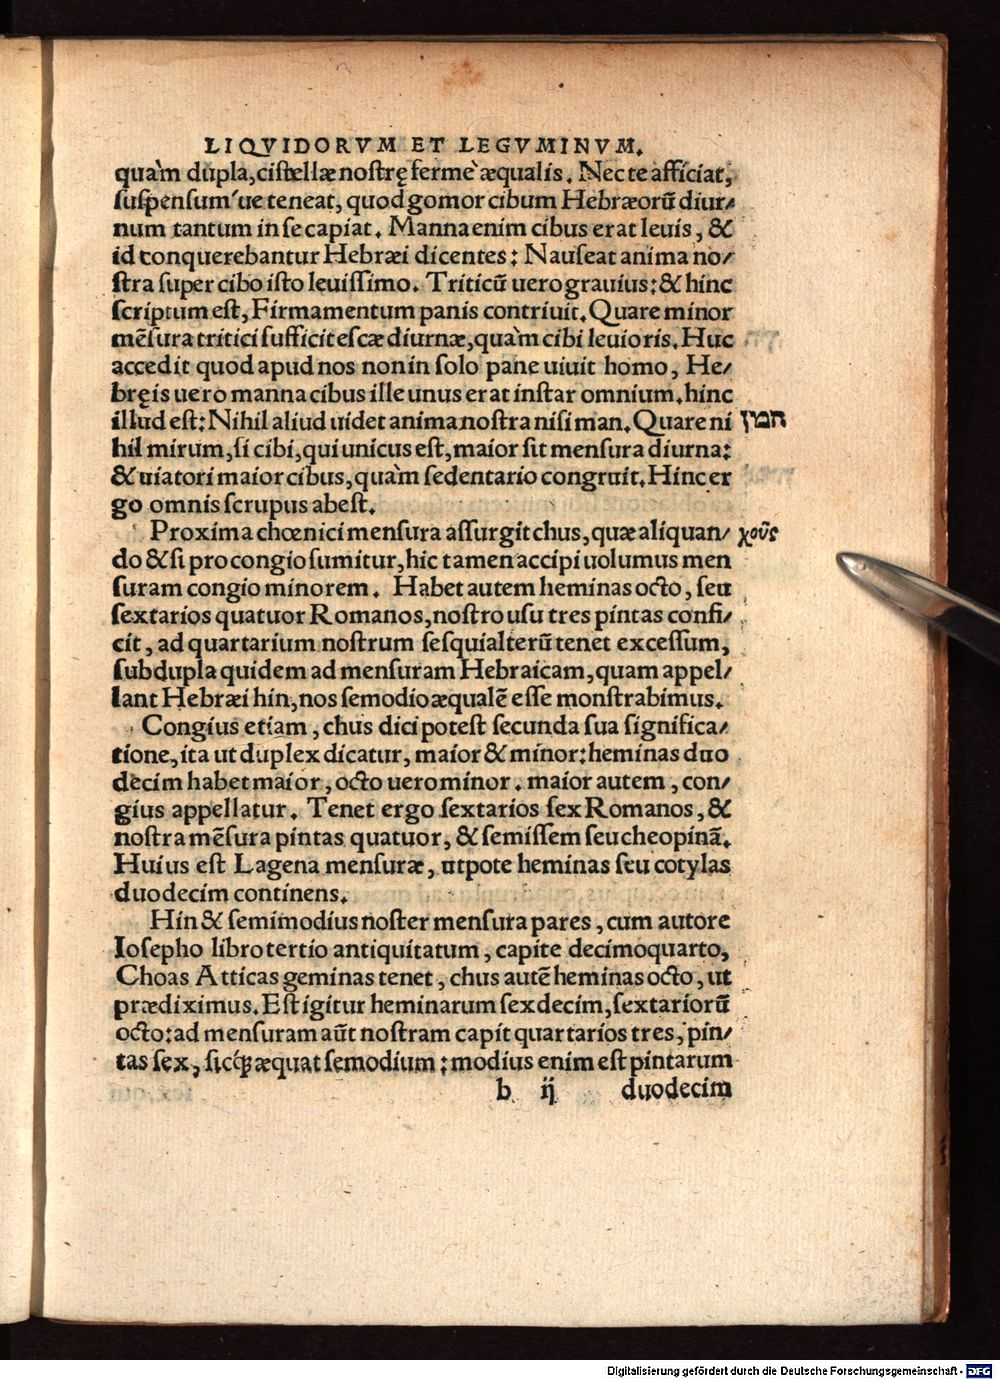 LIQVIDORVM ET LEGVMINVM.
quàm dupla, cistellæ nostrę fermè æqualis. Nec te afficiat,
suspensum´ue teneat, quod gomor cibum Hebræorū diur/
num tantum in se capiat. Manna enim cibus erat leuis, &
id conquerebantur Hebræi dicentes: Nauseat anima no/
stra super cibo isto leuissimo. Triticū uero grauius: & hinc
scriptum est, Firmamentum panis contriuit. Quare minor
mēsura tritici sufficit escæ diurnæ, quàm cibi leuioris. Huc
accedit quod apud nos non in solo pane uiuit homo, He/
bręis uero manna cibus ille unus erat instar omnium. hinc
illud est: Nihil aliud uidet anima nostra nisi man. Quare ni המן
hil mirum, si cibi, qui unicus est, maior sit mensura diurna:
& uiatori maior cibus, quàm sedentario congruit. Hinc er
go omnis scrupus abest.
Proxima chœnici mensura assurgit chus, quæ aliquan/ χοῦς
do & si pro congio sumitur, hic tamen accipi uolumus men
suram congio minorem. Habet autem heminas octo, seu
sextarios quatuor Romanos, nostro usu tres pintas confi/
cit, ad quartarium nostrum sesquialterū tenet excessum,
subdupla quidem ad mensuram Hebraicam, quam appel/
lant Hebræi hin, nos semodio æqualē esse monstrabimus.
Congius etiam, chus dici potest secunda sua significa/
tione, ita ut duplex dicatur, maior & minor: heminas duo
decim habet maior, octo uero minor. maior autem, con/
gius appellatur. Tenet ergo sextarios sex Romanos, &
nostra mēsura pintas quatuor, & semissem seu cheopinā.
Huius est Lagena mensuræ, utpote heminas seu cotylas
duodecim continens.
Hin & semimodius noster mensura pares, cum autore
Iosepho libro tertio antiquitatum, capite decimoquarto,
Choas Atticas geminas tenet, chus autē heminas octo, ut
prædiximus. Est igitur heminarum sexdecim, sextariorū
octo: ad mensuram aūt nostram capit quartarios tres, pin/
tas sex, sicq́; æquat semodium: modius enim est pintarum
b ij duodecim
Digitalisierung gefördert durch die Deutsche Forschungsgemeinschaft - DFG